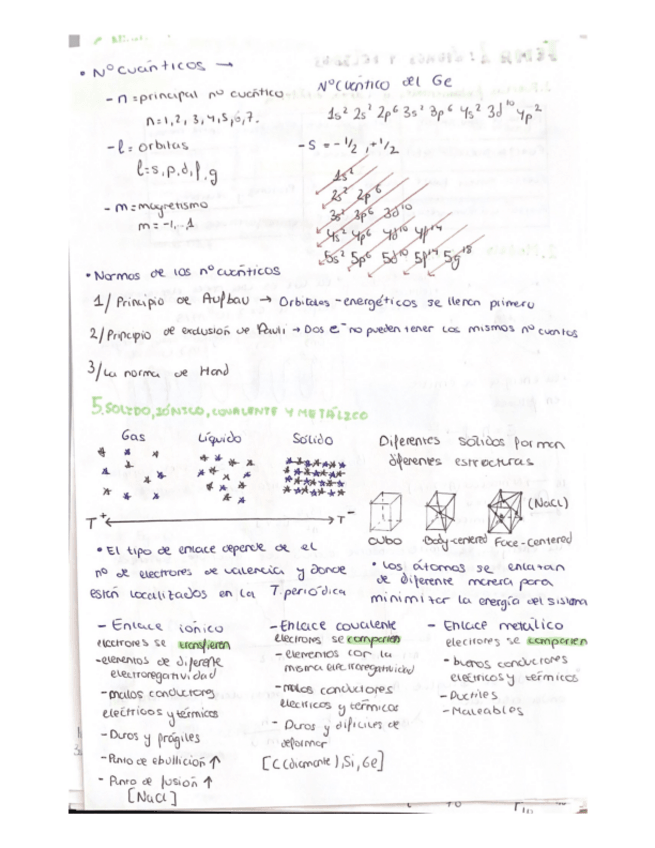 • Nº cuánticos →
- n = principal nº cuántico
n=1, 2, 3, 4, 5, 6, 7.
- l = orbitas
l=s, p, d, f, g
- m = magnetismo
m = -1,..1
Nº Cuántico del Ge
1s² 2s² 2p⁶ 3s² 3p⁶ 4s² 3d¹⁰ 4p²
- S = -1/2, +1/2
1s²
2s² 2p⁶
3s² 3p⁶ 3d¹⁰
4s² 4p⁶ 4d¹⁰ 4f¹⁴
5s² 5p⁶ 5d¹⁰ 5f¹⁴ 5g¹⁸
• Normas de los nº cuánticos
1/ Principio de Aufbau → Orbitales - energéticos se llenan primero
2/ Principio de exclusión de Pauli → Dos e⁻ no pueden tener los mismos nº cuantos
3/ La norma de Hand
5. SOLIDO, IÓNICO, COVALENTE Y METÁLICO
Gas Líquido Sólido
T⁺ T⁻
Diferentes sólidos forman
diferentes estructuras
(NaCl)
Cubo Body-centered Face-Centered
• El tipo de enlace depende de el
nº de electrones de valencia y donde
están localizados en la T. periódica
• Los átomos se enlazan
de diferente manera para
minimizar la energía del sistema
- Enlace iónico
electrones se transfieren
- elementos de diferente
electronegatividad
- malos conductores
eléctricos y térmicos
- Duros y frágiles
- Punto de ebullición ↑
- Punto de fusión ↑
[NaCl]
- Enlace covalente
electrones se comparten
- elementos con la
misma electronegatividad
- malos conductores
eléctricos y térmicos
- Duros y difíciles de
deformar
[C (diamante), Si, Ge]
- Enlace metálico
electrones se comparten
- buenos conductores
eléctricos y térmicos
- Ductiles
- Maleables